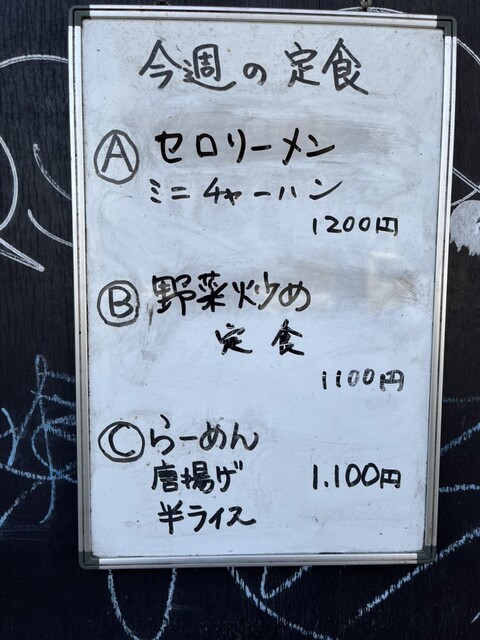 今週の定食
Ⓐ セロリーメン
ミニチャーハン
1200円
Ⓑ 野菜炒め
定食
1100円
Ⓒ らーめん
唐揚げ 1.100円
半ライス